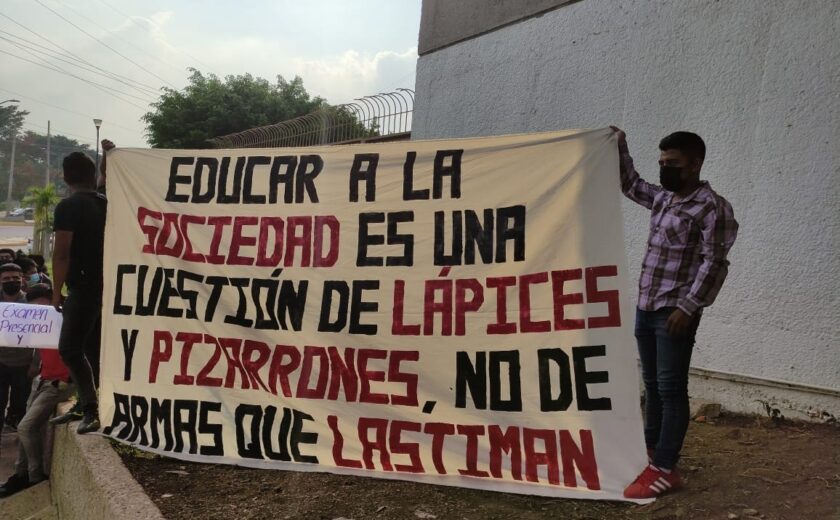 EDUCAR A LA
SOCIEDAD ES UNA
CUESTIÓN DE LÁPICES
Y PIZARRONES, NO DE
ARMAS QUE LASTIMAN
Examen
Presencial
y